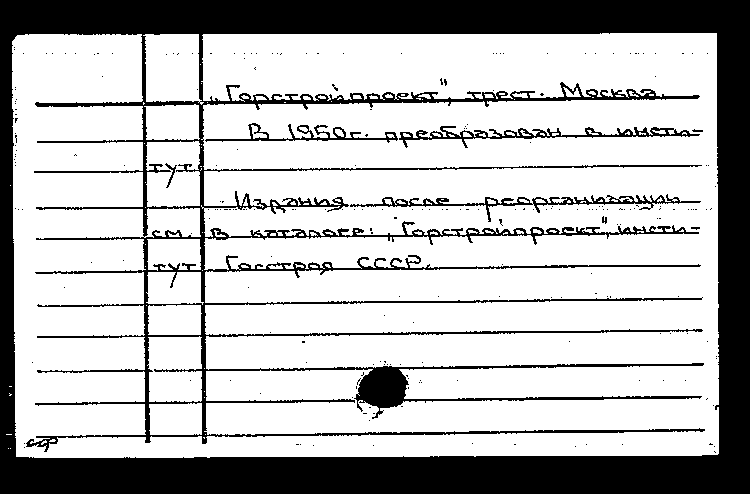 „Горстройпроект", трест. Москва.
В 1950г. преобразован в инсти-
тут.
Издания после реорганизации
см. в каталоге: „Горстройпроект", инсти-
тут Госстроя СССР.